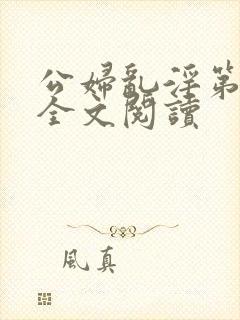 公婦亂淫第
全文閱讀
風真